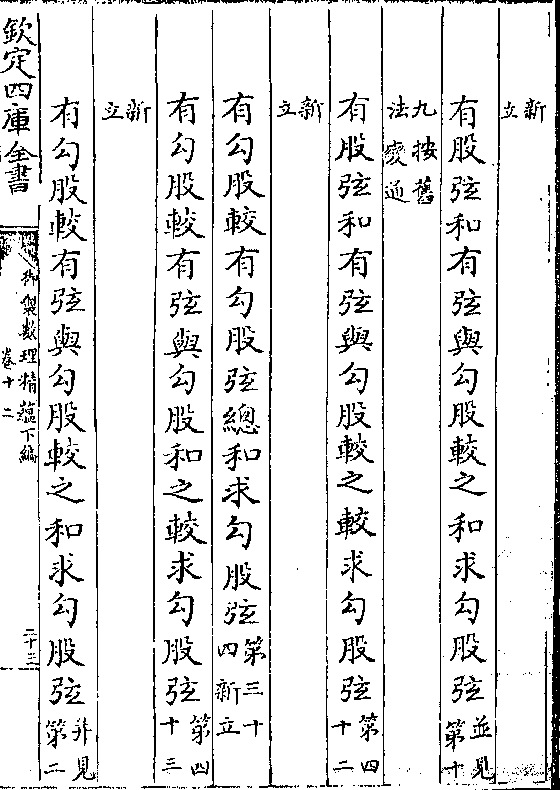 新立
有股弦和有弦與勾股較之和求勾股弦並見第十
九按舊法變通
有股弦和有弦與勾股較之較求勾股弦第四十二
新立
有勾股較有勾股弦總和求勾股弦第三十四新立
有勾股較有弦與勾股和之較求勾股弦第四十三
新立
有勾股較有弦與勾股較之和求勾股弦并見第二
欽定四庫全書
御製數理精蘊下編
卷十二
二十三